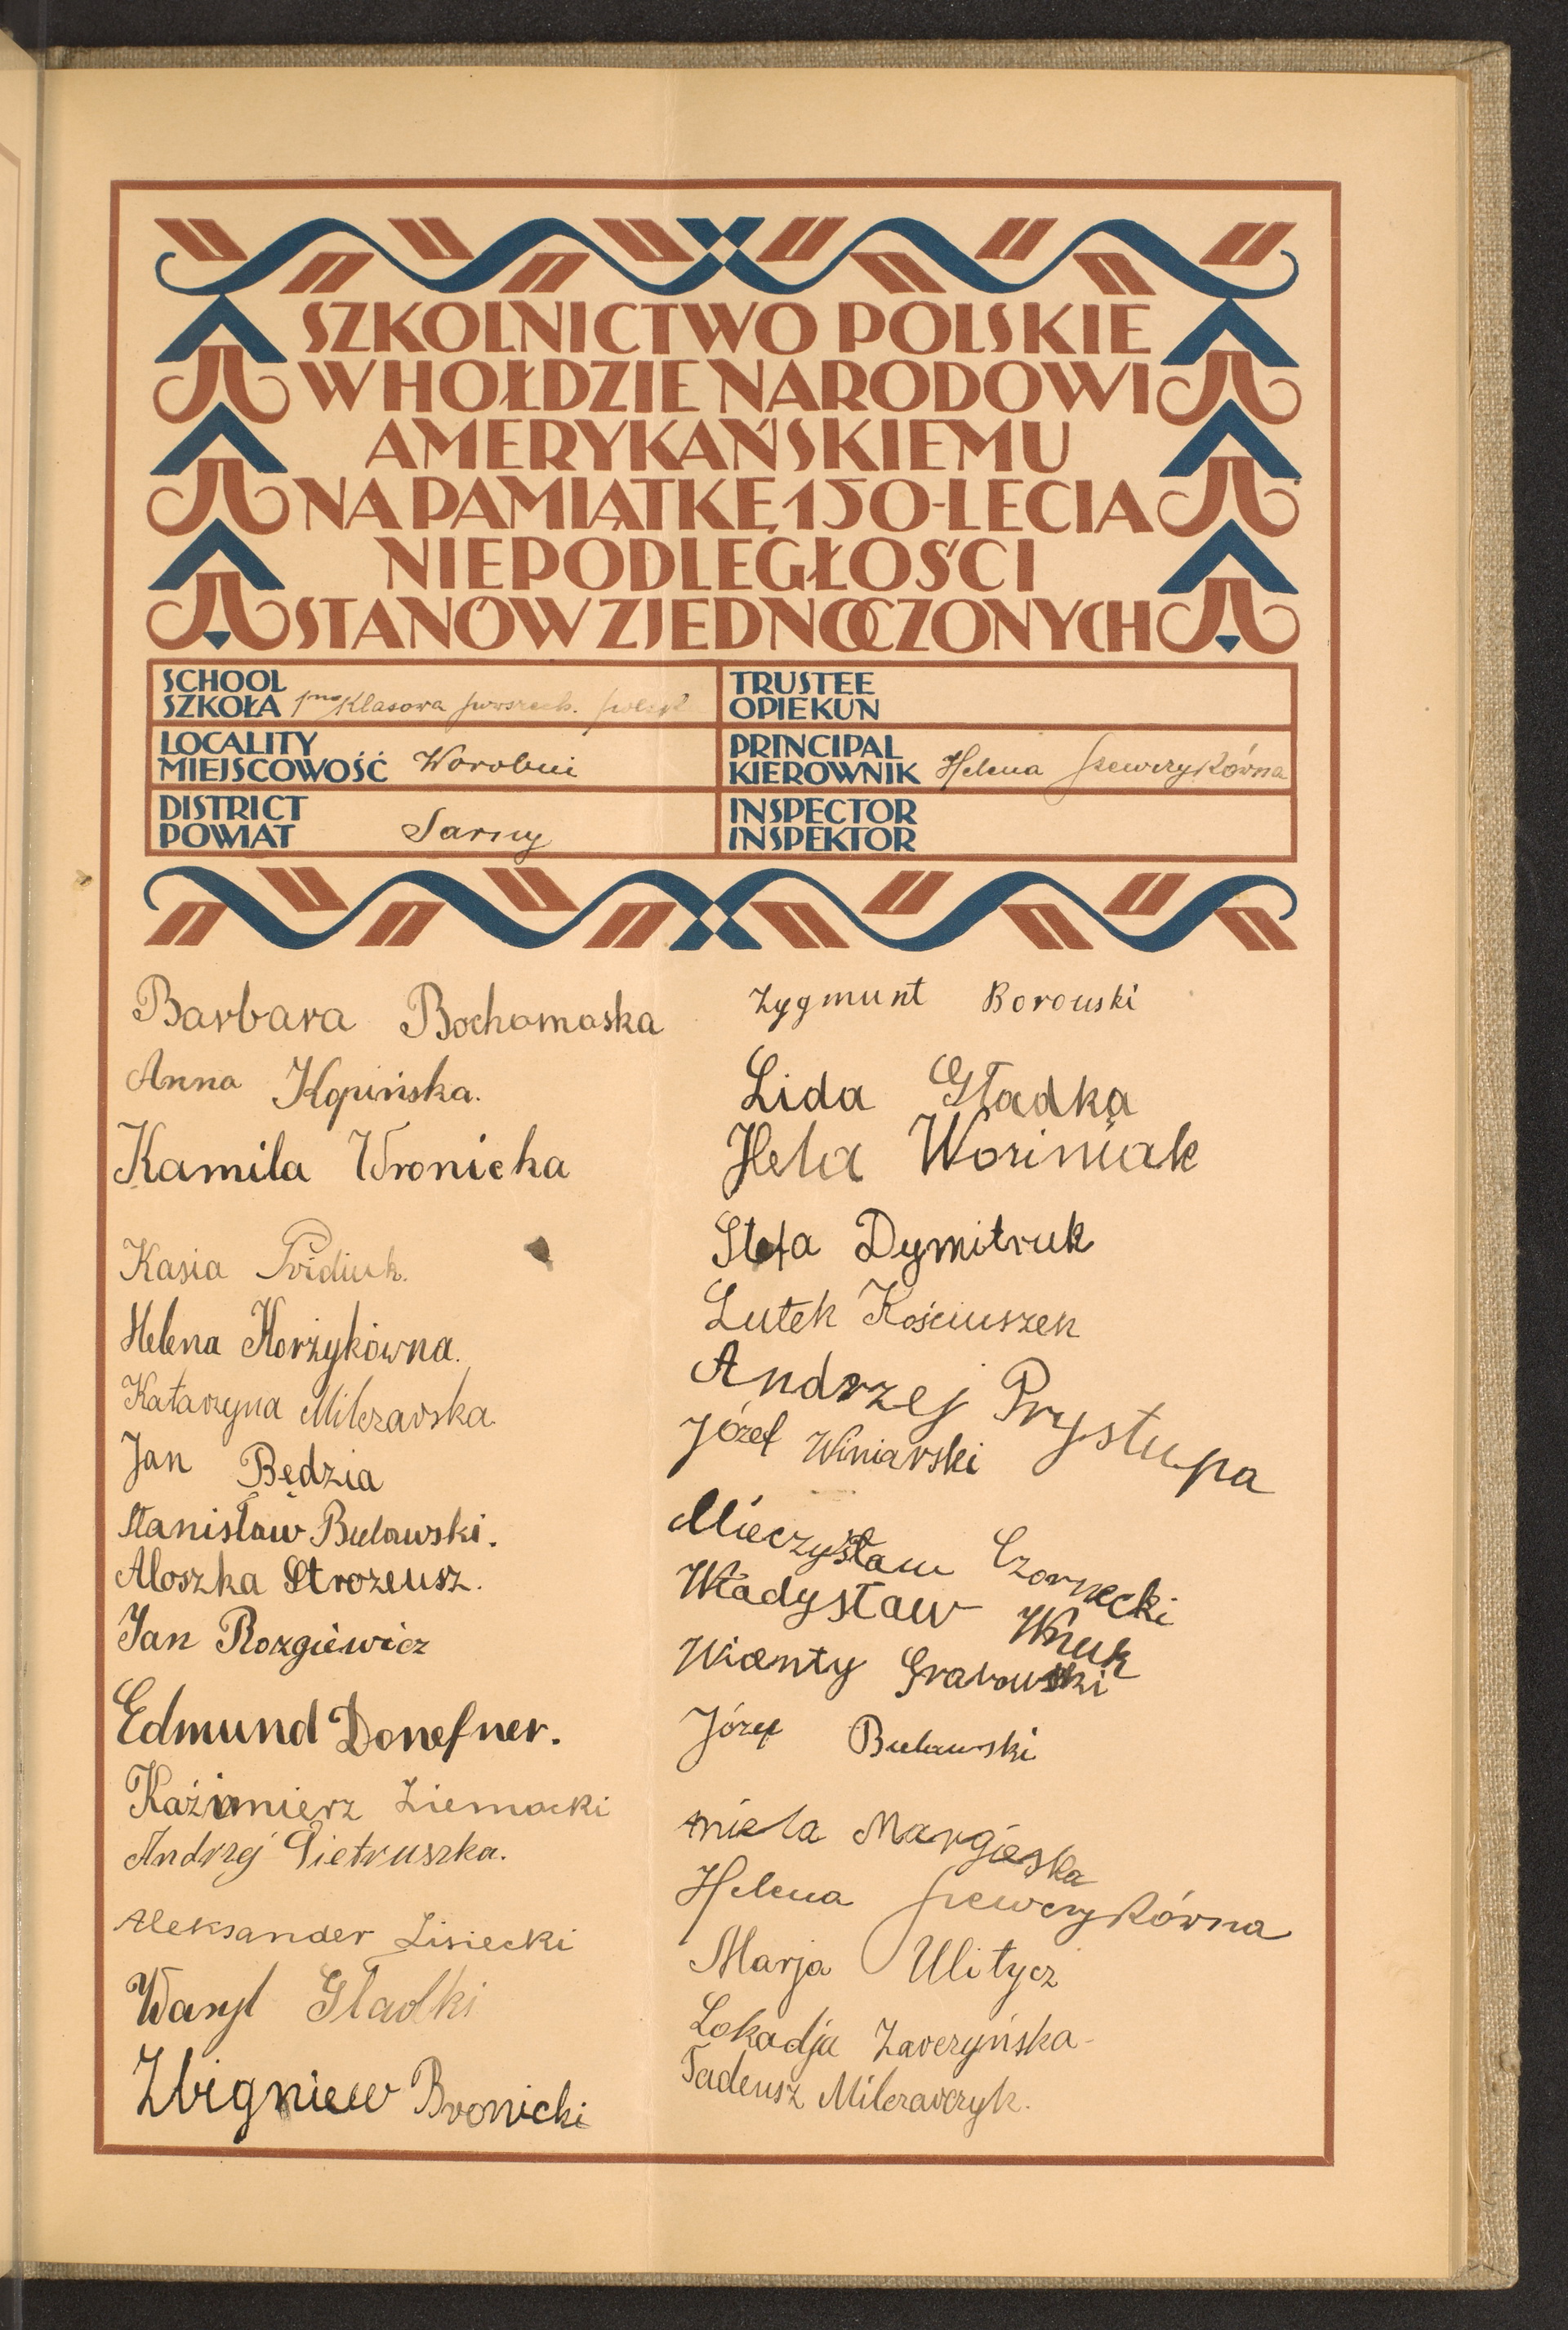 SZKOLNICTWO POLSKIE
W HOŁDZIE NARODOWI
AMERYKAŃSKIEMU
NA PAMIĄTKĘ 150-LECIA
NIEPODLEGŁOŚCI
STANÓW ZJEDNOCZONYCH
SCHOOL
SZKOŁA Klasowa
TRUSTEE
OPIEKUN
LOCALITY
MIEJSCOWOŚĆ Worobui
PRINCIPAL
KIEROWNIK Helena Szewczykówna
DISTRICT
POWIAT Sarny
INSPECTOR
INSPEKTOR
Barbara Bochomaska
Anna Kopińska.
Kamila Wronicka
Kasia
Helena Korżykówna.
Katarzyna Milczarska
Jan Będzia
Stanisław Buławski.
Aloszka Strozeusz.
Jan Rozgiewicz
Edmund Donefner.
Kaźimierz Ziemacki
Andrzej Pietruszka.
Aleksander Lisiecki
Wasyl Gladki
Zbigniew Bronicki
Zygmunt Borowski
Lida Gładka
Hela Woriniak
Stefa Dymitruk
Lutek Kościuszek
Andrzej Prystupa
Józef Winiarski
Mieczysław Czornecki
Władysław Wnuk
Wicenty Grabowski
Józef Buławski
Aniela Margieska
Helena Szewczykówna
Marja Ulitycz
Lokadja Zaverzyńska
Tadeusz Milczarczyk.